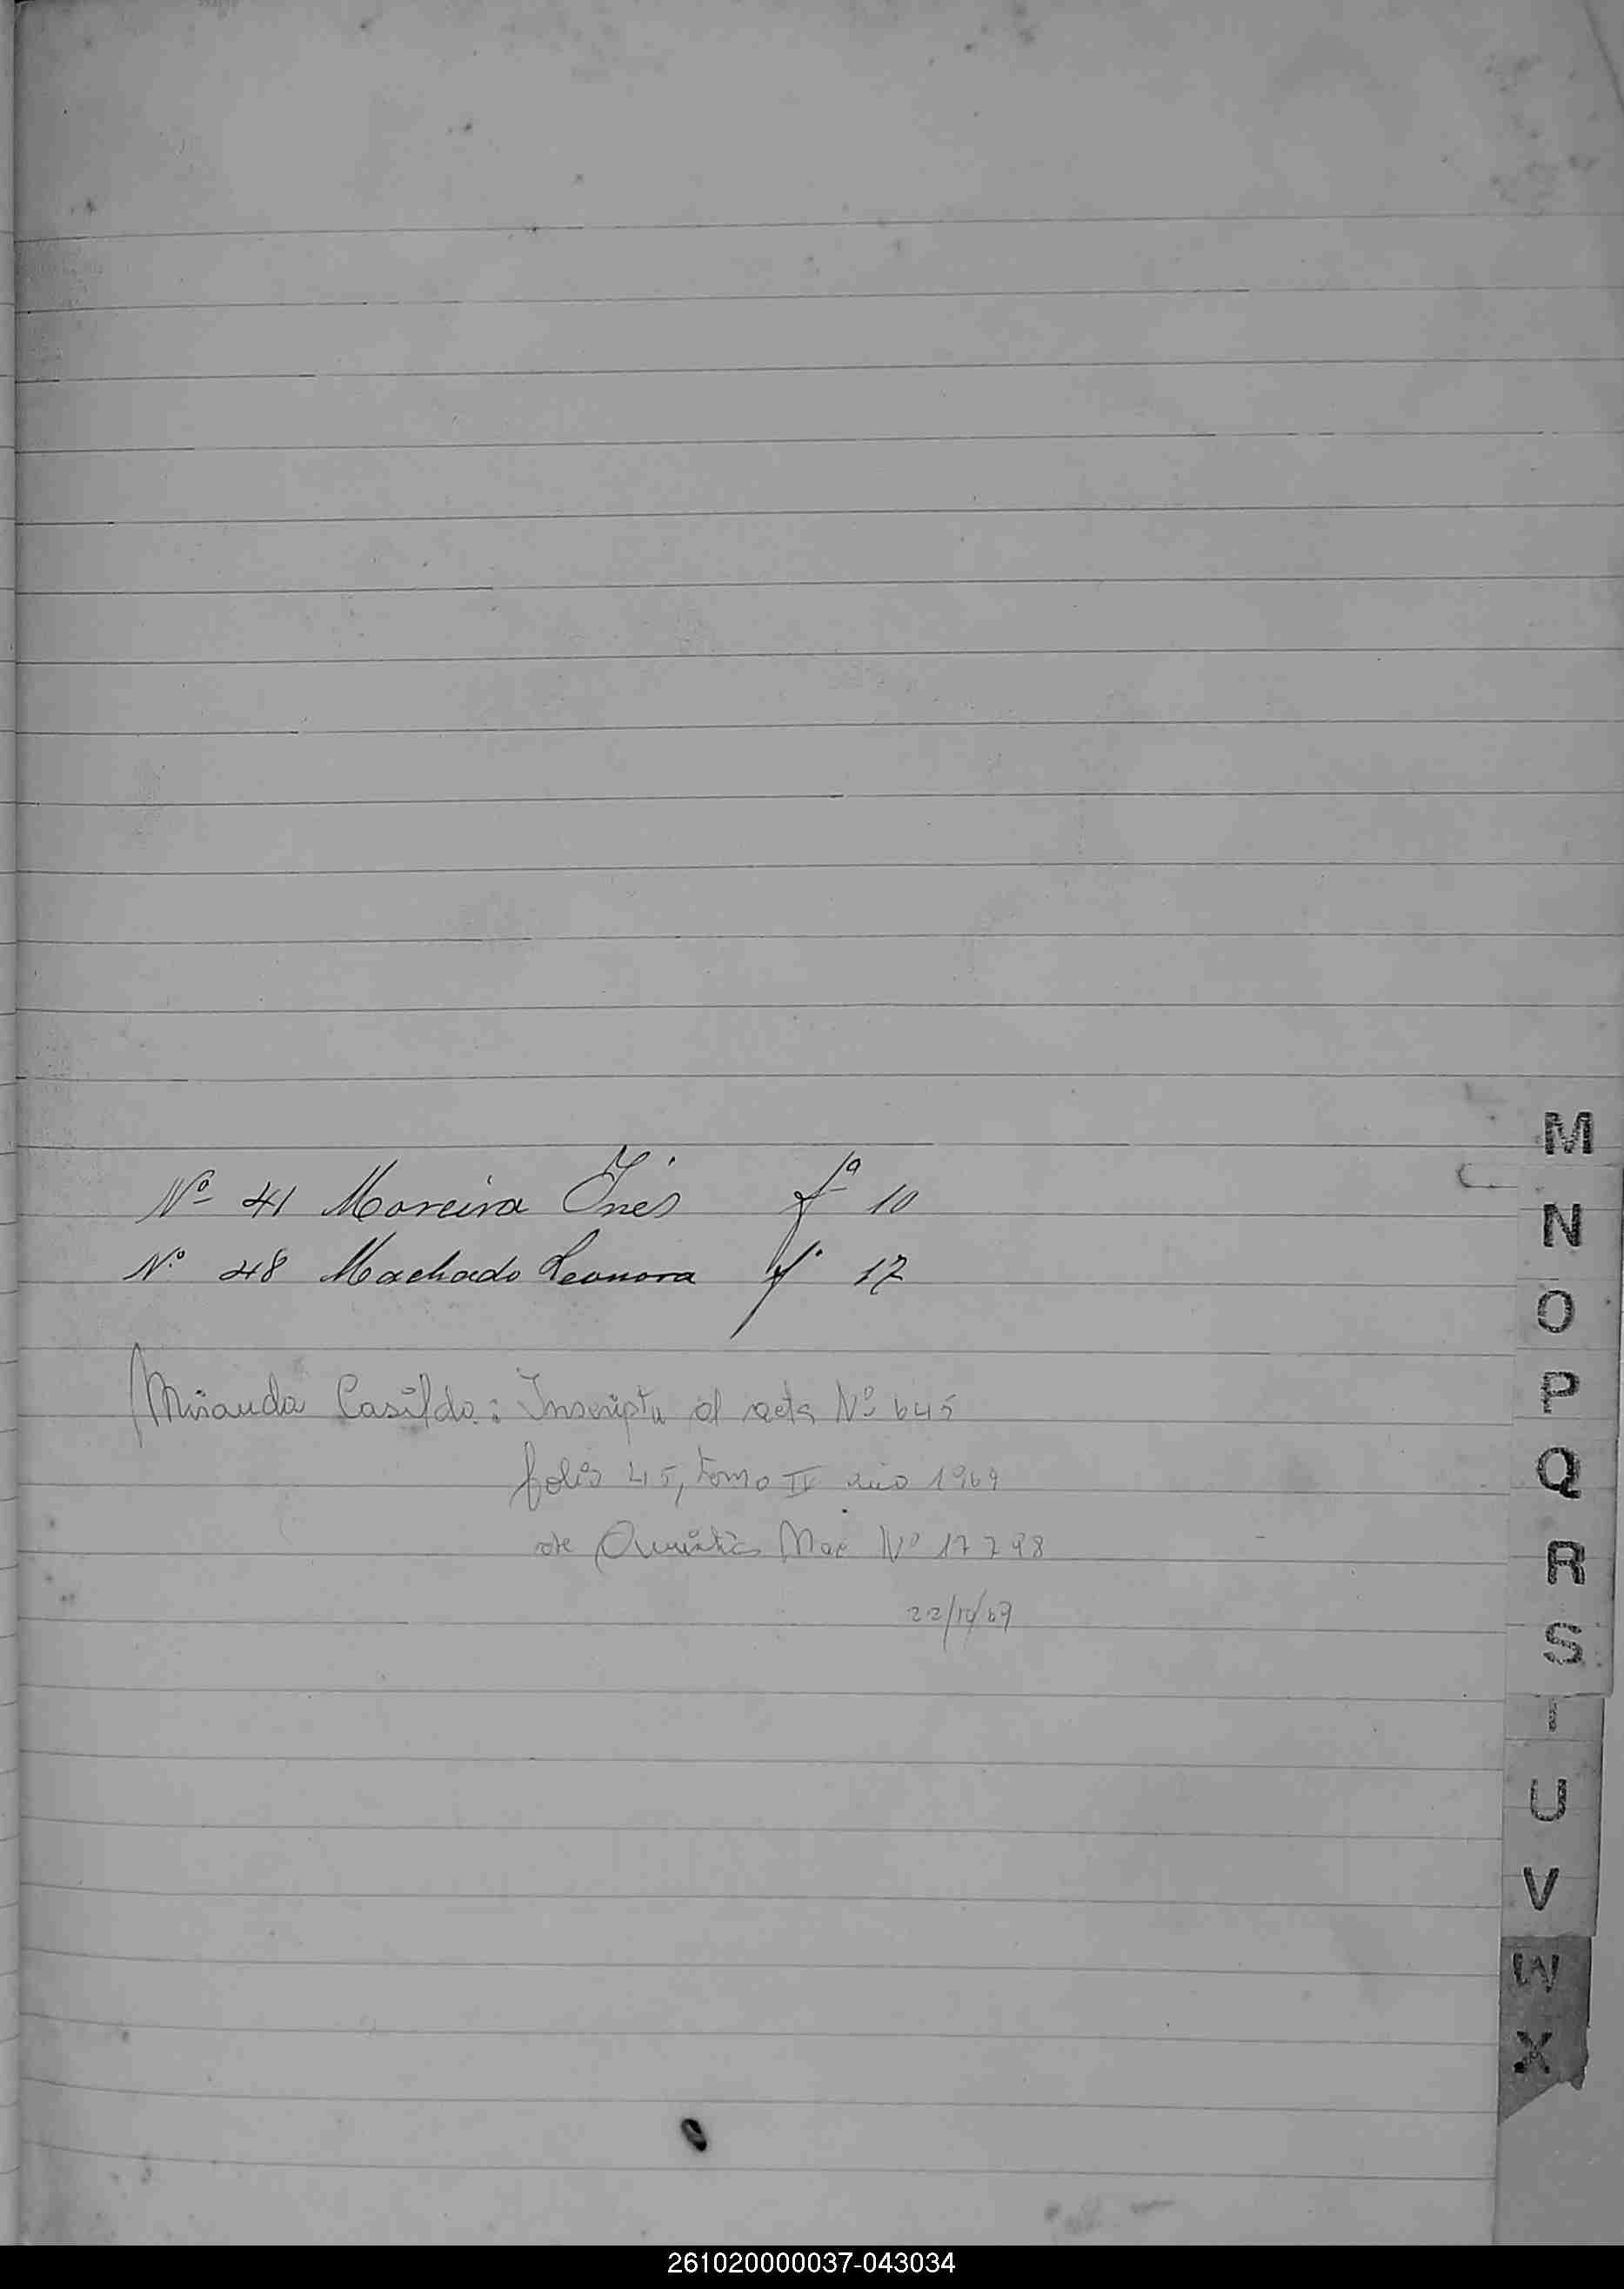 Nº 41 Moreira Inés fº 10
Nº 48 Machado Leonora fº 17
Miranda Casildo: Inscripta al acta Nº 645
folio 45, tomo II año 1969
de Nº 17798
22/12/69
M
N
O
P
Q
R
S
T
U
V
W
X
261020000037-043034